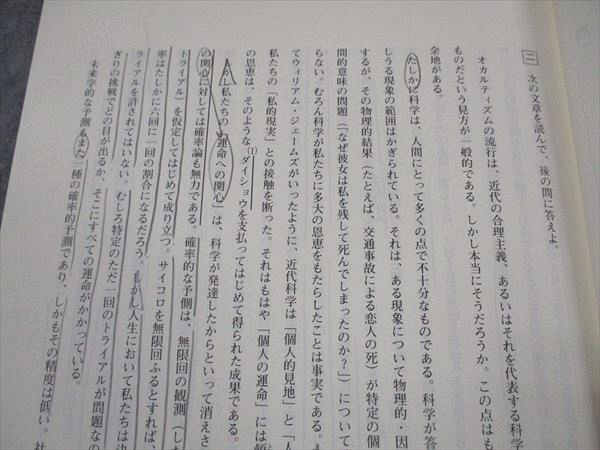 三 次の文章を読んで、後の問に答えよ。
オカルティズムの流行は、近代の合理主義、あるいはそれを代表する科学
ものだという見方が一般的である。しかし本当にそうだろうか。この点はも
余地がある。
たしかに科学は、人間にとって多くの点で不十分なものである。科学が答
しうる現象の範囲はかぎられている。それは、ある現象について物理的・因
するが、その物理的結果（たとえば、交通事故による恋人の死）が特定の個
間的意味の問題（「なぜ彼女は私を残して死んでしまったのか？」）について
らない。むろん科学が私たちに多大の恩恵をもたらしたことは事実である。
てウィリアム・ジェームズがいったように、近代科学は「個人的見地」と「人
私たちの「私的現実」との接触を断った。それはもはや「個人の運命」には
の恩恵は、そのような(1)ダイショウを支払ってはじめて得られた成果である。
しかし私たちの「運命への関心」は、科学が発達したからといって消えさ
の関心に対しては確率論も無力である。確率的な予測は、無限回の観測（
トライアル）を仮定してはじめて成り立つ。サイコロを無限回ふるとすれば、
率はたしかに六回に一回の割合になるだろう。しかし人生において私たちは
ライアルを許されてはいない。むしろ特定のただ一回のトライアルが問題なの
ぎりの挑戦でどの目が出るか、そこにすべての運命がかかっている。
未来学的な予測もまた一種の確率的予測であり、しかもその精度は低い。社